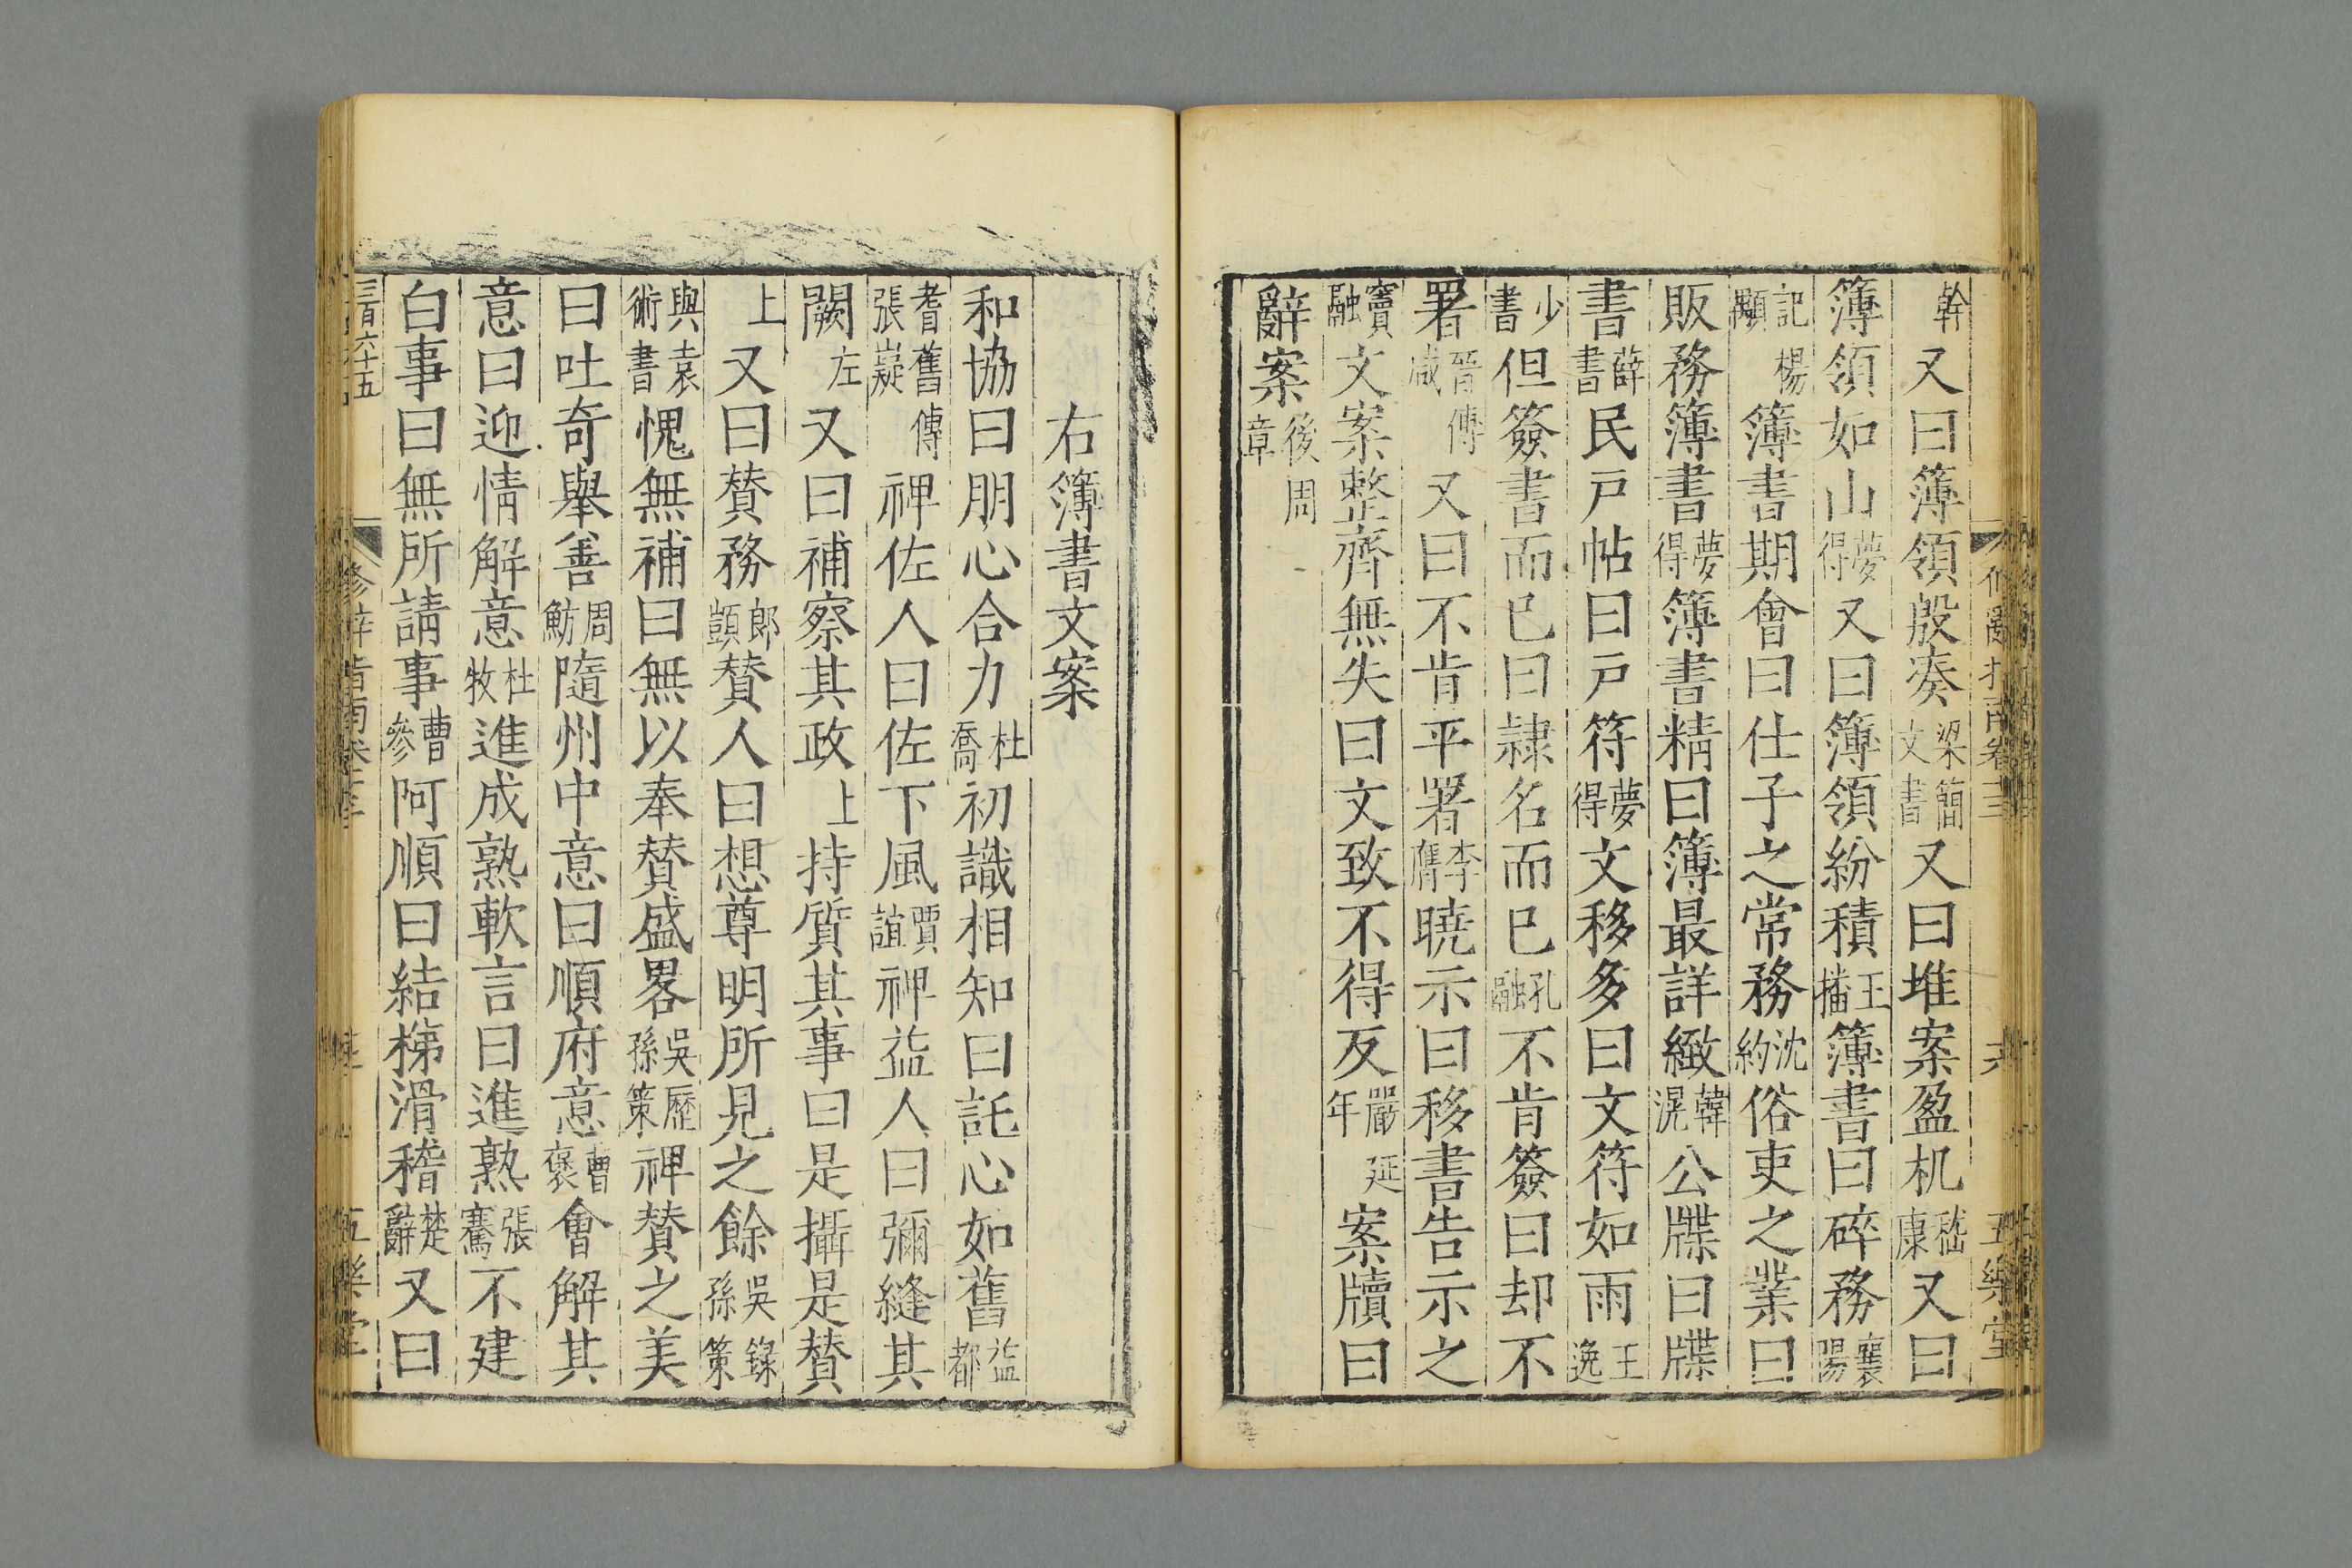 幹又曰簿領殷湊梁簡文書又曰堆案盈机嵇康又曰
簿領如山夢得又曰簿領紛積王播簿書曰碎務襄陽
記楊顒簿書期會曰仕子之常務沈約俗吏之業曰
販務簿書夢得簿書精曰簿最詳緻韓滉公牒曰牒
書薛書民戸帖曰戸符夢得文移多曰文符如雨王逸
少書但簽書而已曰隷名而已孔融不肯簽曰却不
署晉傳咸又曰不肯平署李膺曉示曰移書告示之
竇融文案整齊無失曰文致不得反嚴延年案牘曰
辭案後周章
右簿書文案
和協曰朋心合力杜喬初識相知曰託心如舊益都
耆舊傳張嶷裨佐人曰佐下風賈誼裨益人曰彌縫其
闕左又曰補察其政上持質其事曰是攝是賛
上又曰賛務郎顗賛人曰想尊明所見之餘吳録孫策
與袁術書愧無補曰無以奉賛盛畧吳歷孫策裨賛之美
曰吐奇舉善周魴隨州中意曰順府意曹褒會解其
意曰迎情解意杜牧進成熟軟言曰進熟張騫不建
白事曰無所請事曹參阿順曰結梯滑稽楚辭又曰
三百六十五